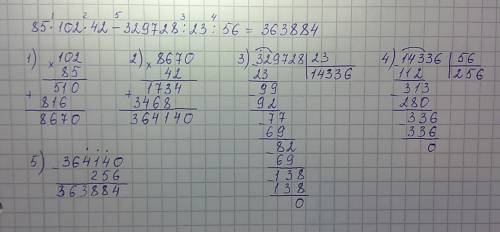 1 2 5 3 4
85 · 102 · 42 - 329728 : 23 : 56 = 363884
1) × 102
85
+ 510
816
8670
2) × 8670
42
+ 1734
3468
364140
3) - 329728 | 23
23 | 14336
- 99
92
- 77
69
- 82
69
- 138
138
0
4) - 14336 | 56
112 | 256
- 313
280
- 336
336
0
5) - 364140
256
363884